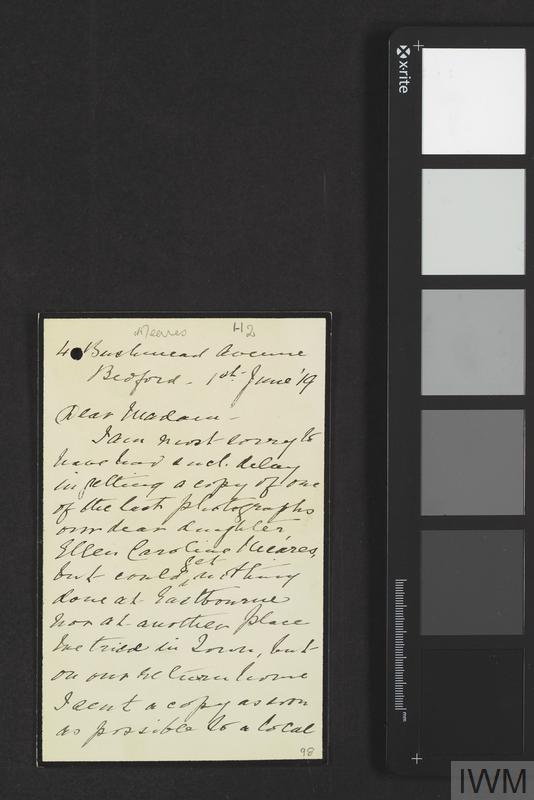 Meares H2
4 Bushmead Avenue
Bedford - 1st June '19
Dear Madam -
I am most sorry to
have had such delay
in getting a copy of one
of the last photographs
our dear daughter
Ellen Caroline Meares,
but could get nothing
done at Eastbourne
nor at another place
we tried in Town, but
on our return home
I sent a copy as soon
as possible to a local
98
x·rite
mm
IWM